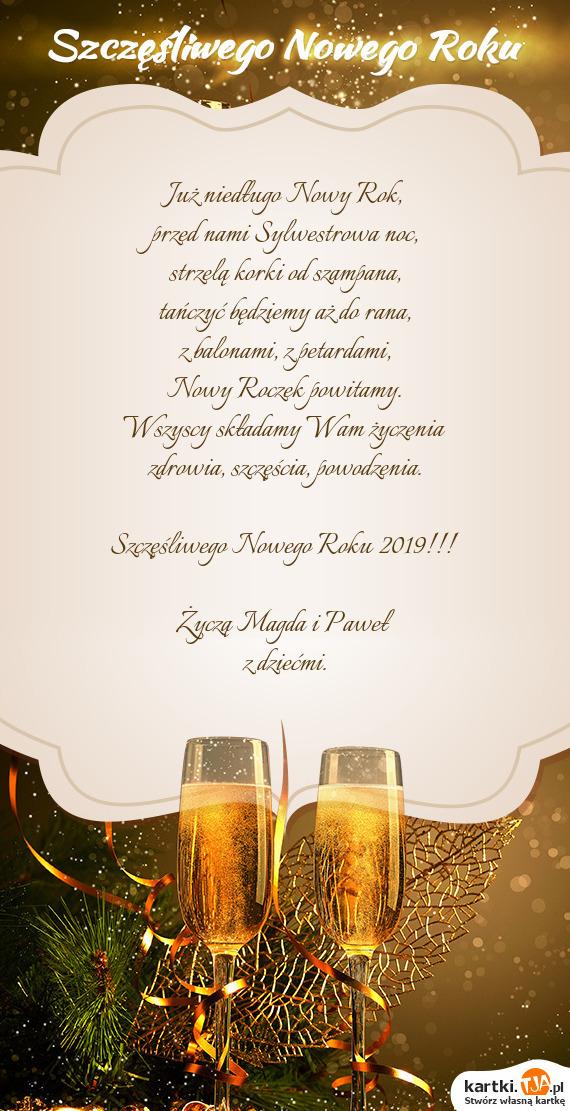 Szczęśliwego Nowego Roku
Już niedługo Nowy Rok,
przed nami Sylwestrowa noc,
strzelą korki od szampana,
tańczyć będziemy aż do rana,
z balonami, z petardami,
Nowy Roczek powitamy.
Wszyscy składamy Wam życzenia
zdrowia, szczęścia, powodzenia.
Szczęśliwego Nowego Roku 2019!!!
Życzą Magda i Paweł
z dziećmi.
kartki.TJA.pl
Stwórz własną kartkę